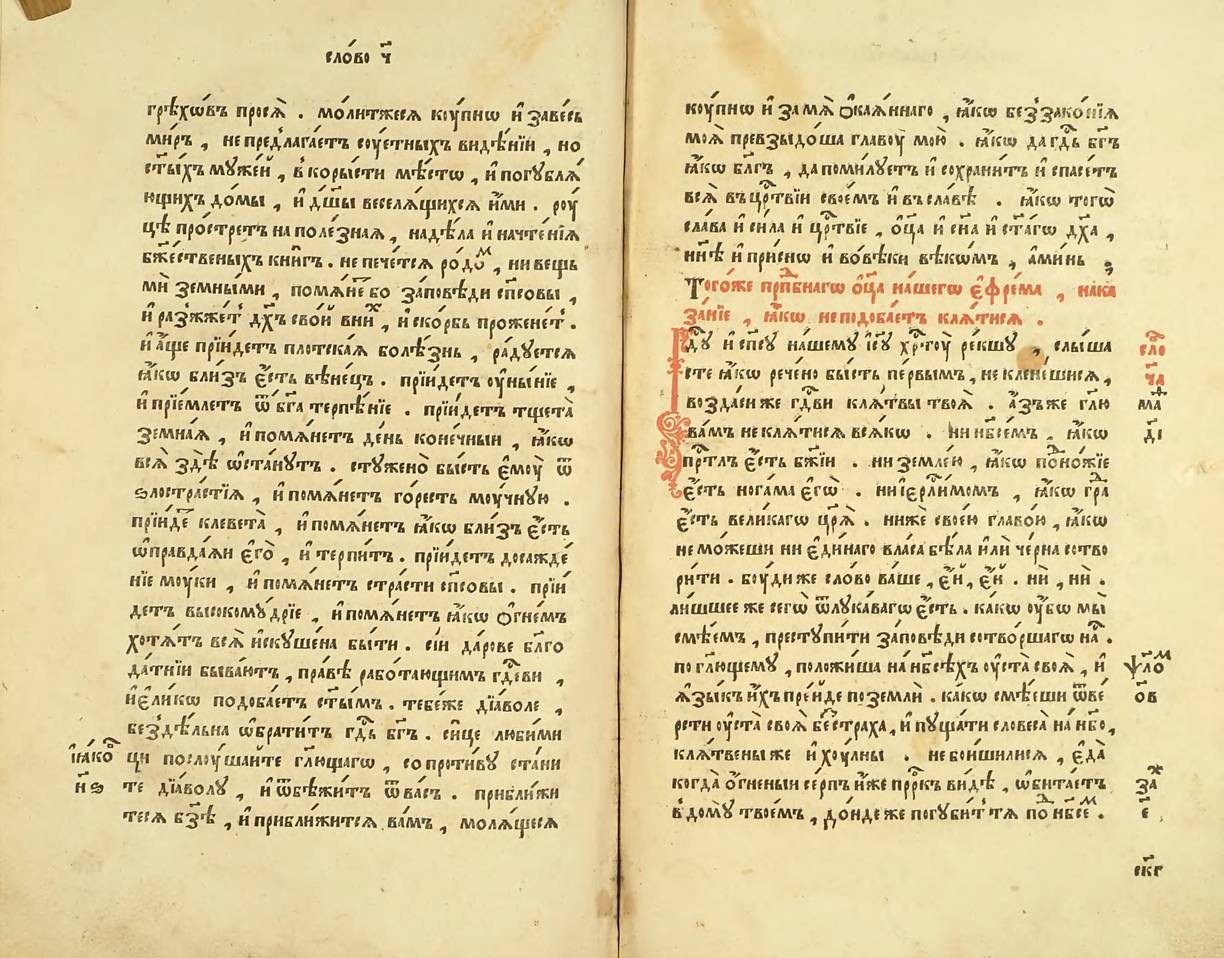 сло́во ч҃
грѣхѡ́въ прося̀ . мо́литжеся кꙋ́пнѡ и҆ завѐсь
ми́ръ , не предлага́етъ сꙋ́етныхъ ви́дѣнїи , но
ст҃ы́хъ мꙋже́й , в коры́сти мѣ́стѡ , и҆ погꙋбля́
ющихъ до́мы , и҆ дш҃ы веселя́щихся и҆́ми . рꙋ́
цѣ про́стретъ на поле́зная , на дѣ́ла и҆ на чте́нїя
бж҃е́ственыхъ кни́гъ . не пече́тся ро́домъ , ни вещь
мѝ земны́ми , помяне́ бо за́повѣди сп҃совы ,
и҆ разжже́т дх҃ъ сво́й в ни́х , и҆ ско́рбь прожене́т .
и҆ а҆́ще прїи́детъ пло́тская боле́знь , ра́дꙋется
ꙗ҆́кѡ бли́зъ є҆́сть вѣне́цъ . прїи́детъ ᲂу҆ны́нїе ,
и҆ прїе́млетъ ѿ бг҃а терпѣ́нїе . прїи́детъ тщета̀
земна́я , и҆ помя́нетъ де́нь коне́чныи , ꙗ҆́кѡ
вся̀ здѣ̀ ѡ҆ста́нꙋтъ . стꙋжено̀ бы́сть є҆мꙋ̀ ѿ
ѕлостра́стїя , и҆ помя́нетъ го́ресть мꙋ́чнꙋю .
прїи́де клевета̀ , и҆ помя́нетъ ꙗ҆́кѡ бли́зъ є҆́сть
ѡ҆правда́яи є҆го̀ , и҆ терпи́тъ . прїи́детъ досажде́
нїе мꙋ́ки , и҆ помя́нетъ стра́сти сп҃совы . прїи́
детъ высокомꙋ́дрїе , и҆ помя́нетъ ꙗ҆́кѡ ѻ҆гне́мъ
хотя́тъ вся̀ и҆скꙋше́на бы́ти . сїѝ да́рове бл҃го
да́тнїи быва́ютъ , пра́вѣ рабо́тающимъ гдⷭ҇еви ,
и҆ є҆ли́кѡ подоба́етъ ст҃ы́мъ . тебе́же дїа́воле ,
безѣ́льна ѡ҆брати́тъ гдⷭ҇ь бг҃ъ . си́це люби́ми
ци послꙋ́шайте гл҃ющагѡ , со проти́вꙋ ста́ни
і҆а́ков
те дїа́волꙋ , и҆ ѿбѣжи́тъ ѿ ва́съ . прибли́жи
н҃ѕ
теся бз҃ѣ , и҆ прибли́жится ва́мъ , моля́щеся
кꙋ́пнѡ и҆ за мя̀ ѻ҆кая́ннаго , ꙗ҆́кѡ беззако́нїя
моя̀ превзыдо́ша главꙋ̀ мою̀ . ꙗ҆́кѡ да гдⷭ҇ь бг҃ъ
ꙗ҆́кѡ бл҃гъ , да поми́лꙋетъ и҆ сохрани́тъ и҆ спасе́тъ
вся̀ въ црⷭ҇твїи свое́мъ и҆ въ сла́вѣ . ꙗ҆́кѡ тогѡ̀
сла́ва и҆ си́ла и҆ црⷭ҇твїе , ѻ҆ц҃а̀ и҆ сн҃а и҆ ст҃а́гѡ дх҃а ,
нн҃ѣ и҆ при́снѡ и҆ во вѣ́ки вѣкѡ́мъ , а҆ми́нь ,
Тогѡ́же прпⷣбнагѡ ѻ҆ц҃а на́шегѡ є҆фре́ма , нака
за́нїе , ꙗ҆́кѡ не подоба́етъ кля́тися .
Гдⷭ҇ꙋ и҆ сп҃сꙋ на́шемꙋ і҆с҃ꙋ хрⷭ҇тꙋ̀ ре́кшꙋ , слы́ша
сло
сте ꙗ҆́кѡ речено̀ бы́сть пе́рвымъ , не клене́шися ,
ч҃а
возда́си же гдⷭ҇ви кля́твы твоя̀ . а҆́зъ же гл҃ю
маѳ
ва́мъ не кля́тися вся́кѡ . ни нб҃се́мъ , ꙗ҆́кѡ
д҃і
прⷭ҇тлъ є҆́сть бж҃їи . ни земле́ю , ꙗ҆́кѡ подно́жїе
є҆́сть нога́ма є҆гѡ̀ . ни і҆ерⷭ҇ли́момъ , ꙗ҆́кѡ гра́дъ
є҆́сть вели́кагѡ цр҃я̀ . ниже свое́ю главо́ю , ꙗ҆́кѡ
не мо́жеши ни є҆ди́наго вла́са бѣ́ла и҆лѝ че́рна сотво
ри́ти . бꙋ́ди же сло́во ва́ше , є҆́й , є҆́й . нѝ , нѝ .
ли́шшее же сегѡ̀ ѿ лꙋка́вагѡ є҆́сть . ка́кѡ ᲂу҆́бѡ мы̀
смѣ́емъ , престꙋпи́ти за́повѣди сотво́ршагѡ на́с .
по гл҃ющемꙋ , положи́ша на нб҃сѣ́хъ ᲂу҆ста̀ своя̀ , и҆
ѱало́м
ꙗ҆зы́къ и҆́хъ пре́йде по землѝ . ка́кѡ смѣ́еши ѿве
о҃в
рсти ᲂу҆ста̀ своя̀ бестра́ха , и҆ пꙋща́ти словеса̀ на нб҃о ,
кля́твены же и҆ хꙋ́лны . не бои́шилися , є҆да̀
когда̀ ѻ҆́гненыи се́рпъ и҆́же прⷪ҇ркъ ви́дѣ , ѡ҆бита́етъ
за́х
в домꙋ̀ твое́мъ , до́ндеже погꙋби́т тя по́д нб҃се́м .
е҃
ск҃г